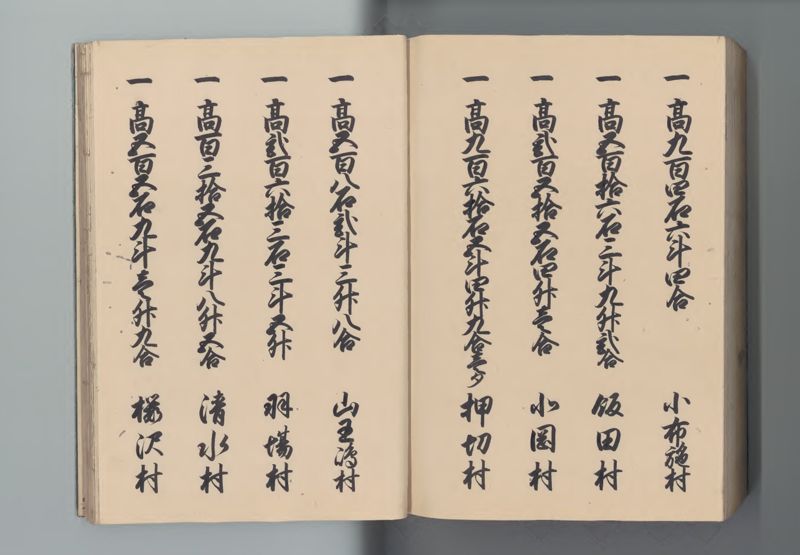 一 高九百四石六斗四合 小布施村
一 高五百拾六石三斗九升弐合 飯田村
一 高弐百五拾五石四升壱合 小圀村
一 高九百六拾石五斗四升九合壱夕 押切村
一 高五百八石弐斗三升八合 山王嶋村
一 高弐百六拾三石三斗五升 羽場村
一 高百三拾五石九斗八升五合 清水村
一 高五百五石九斗壱升九合 桜沢村